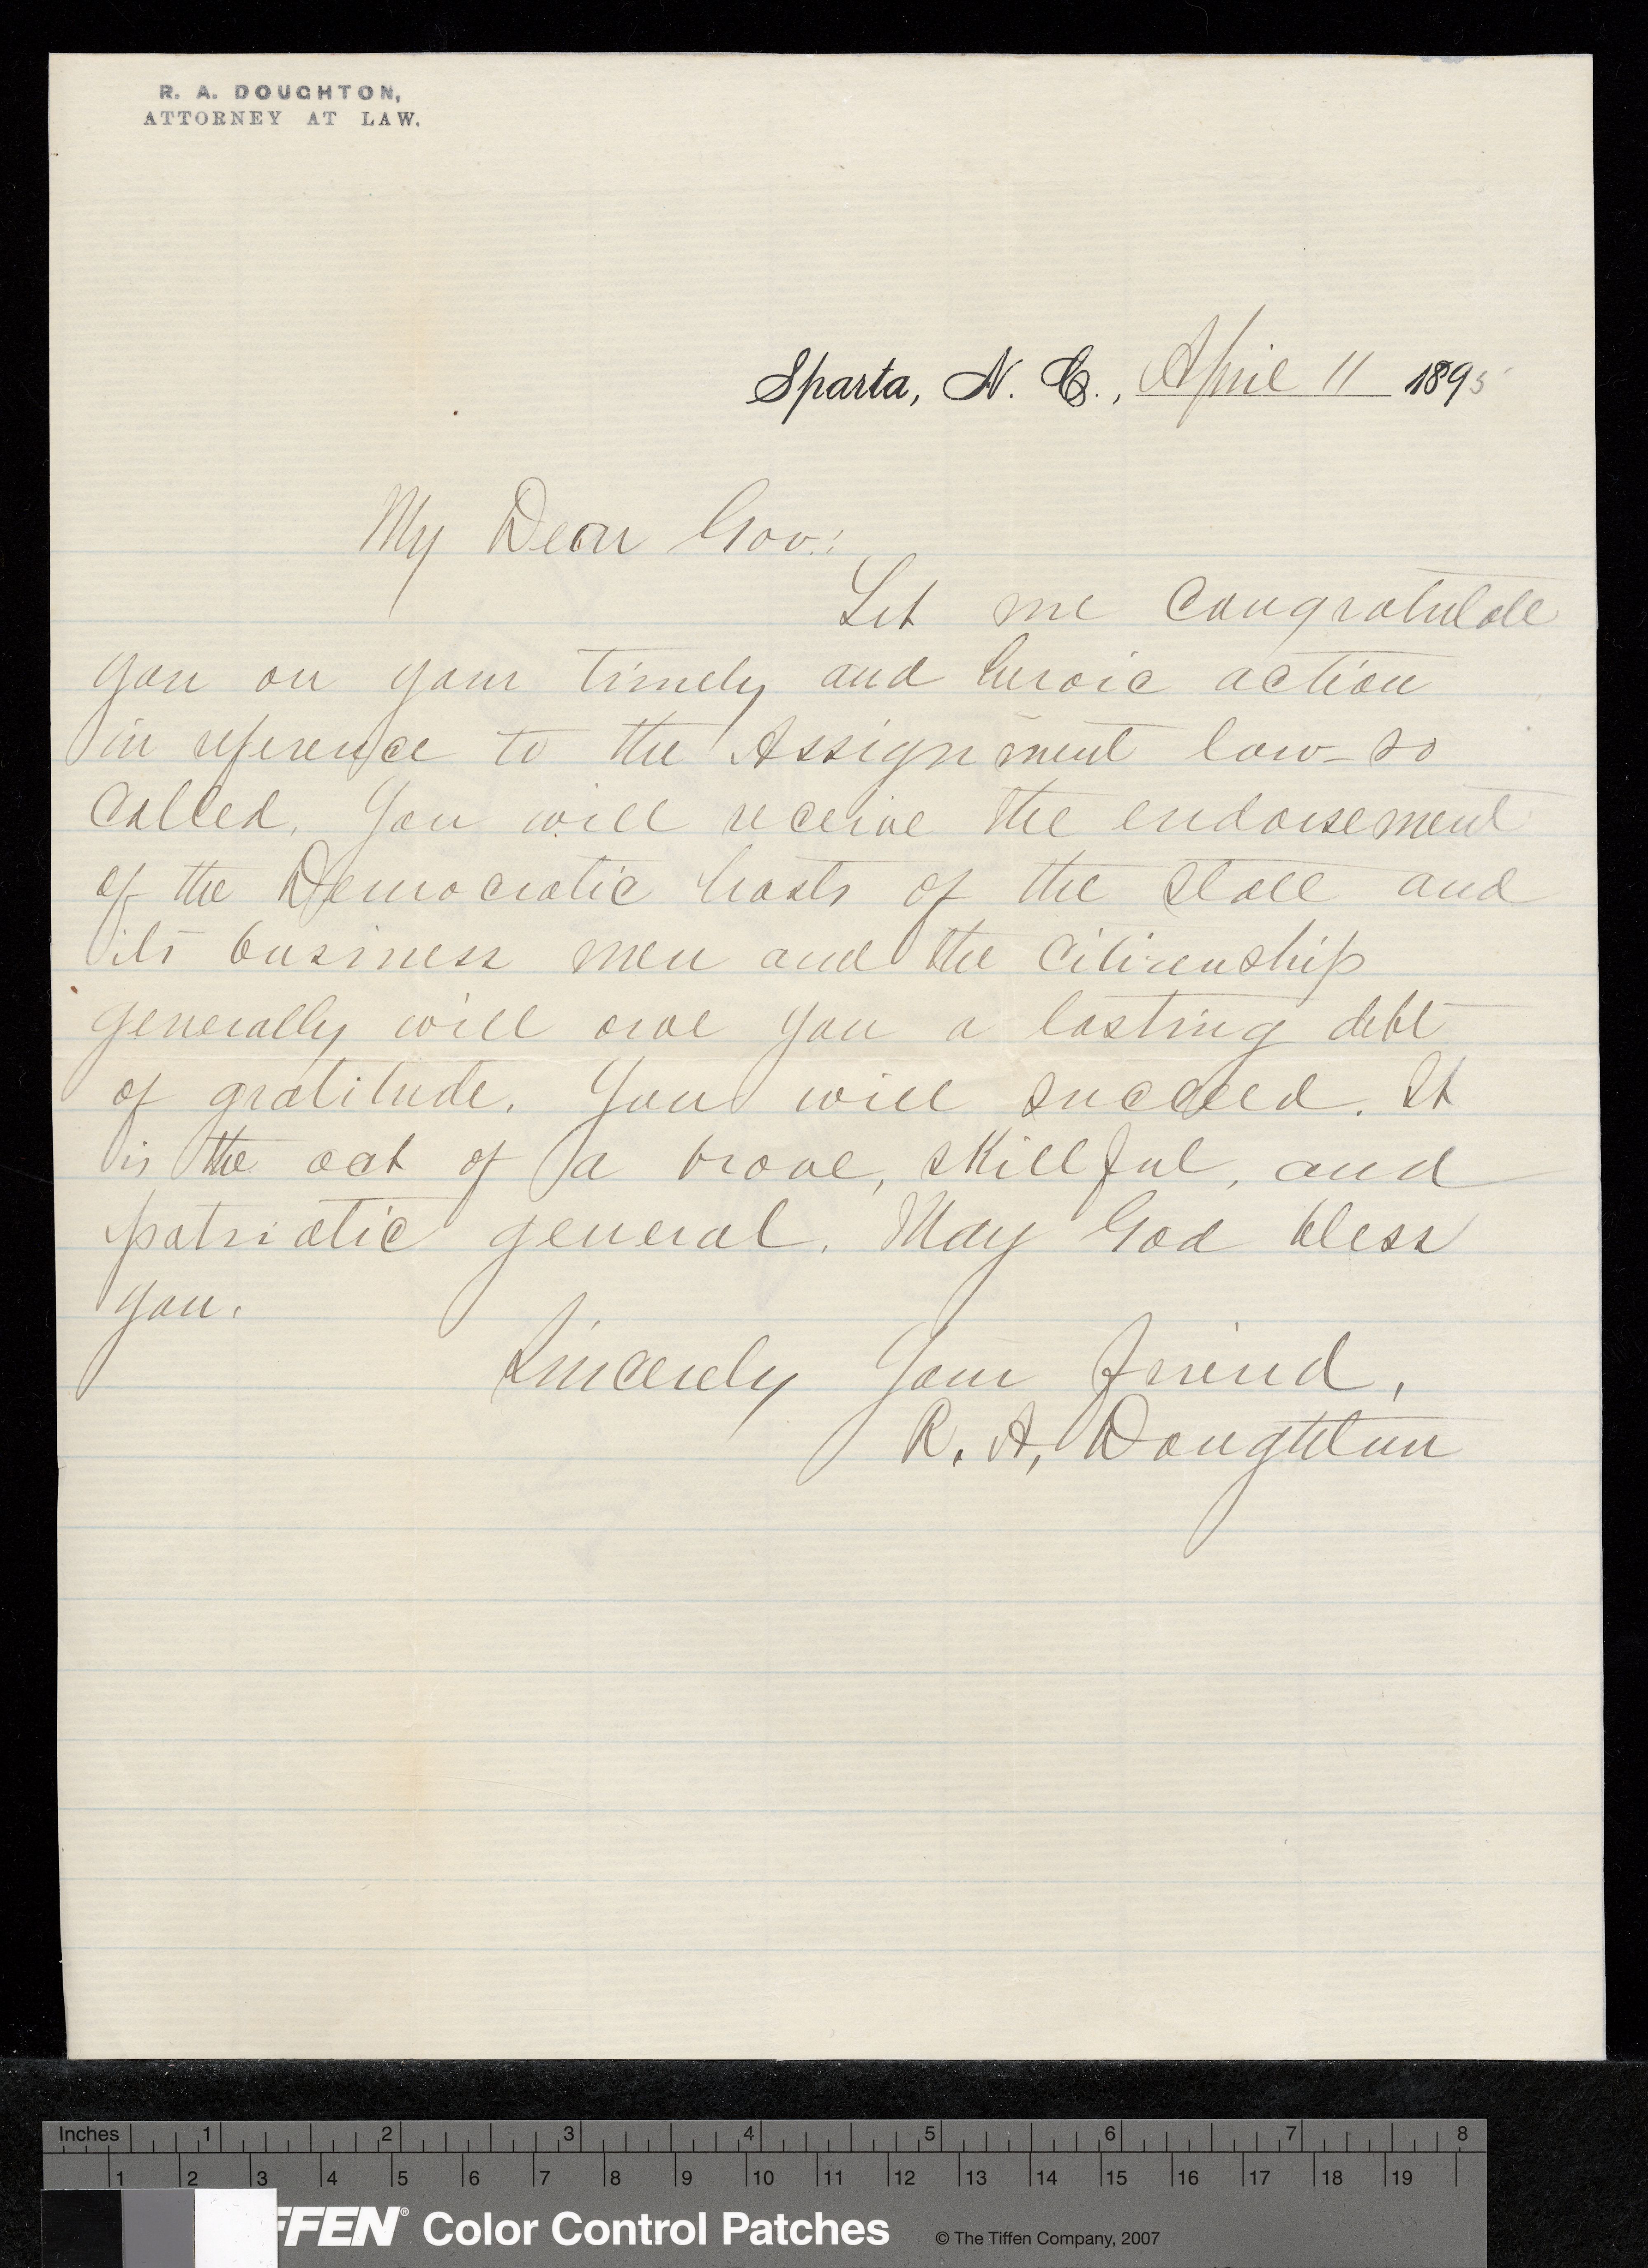 R. A. DOUGHTON,
ATTORNEY AT LAW.
Sparta, N. C., April 11 1895
My Dear Gov.:
Let me congratulate
you on your timely and heroic action
in reference to the Assignment law - so
called. You will receive the endorsement
of the Democratic hosts of the State and
its business men and the citizenship
generally will owe you a lasting debt
of gratitude. You will succeed. It
is the act of a brave, skillful, and
patriotic general. May God bless
you.
Sincerely your friend,
R. A. Doughton
Inches 1 2 3 4 5 6 7 8
1 2 3 4 5 6 7 8 9 10 11 12 13 14 15 16 17 18 19
FFEN® Color Control Patches © The Tiffen Company, 2007